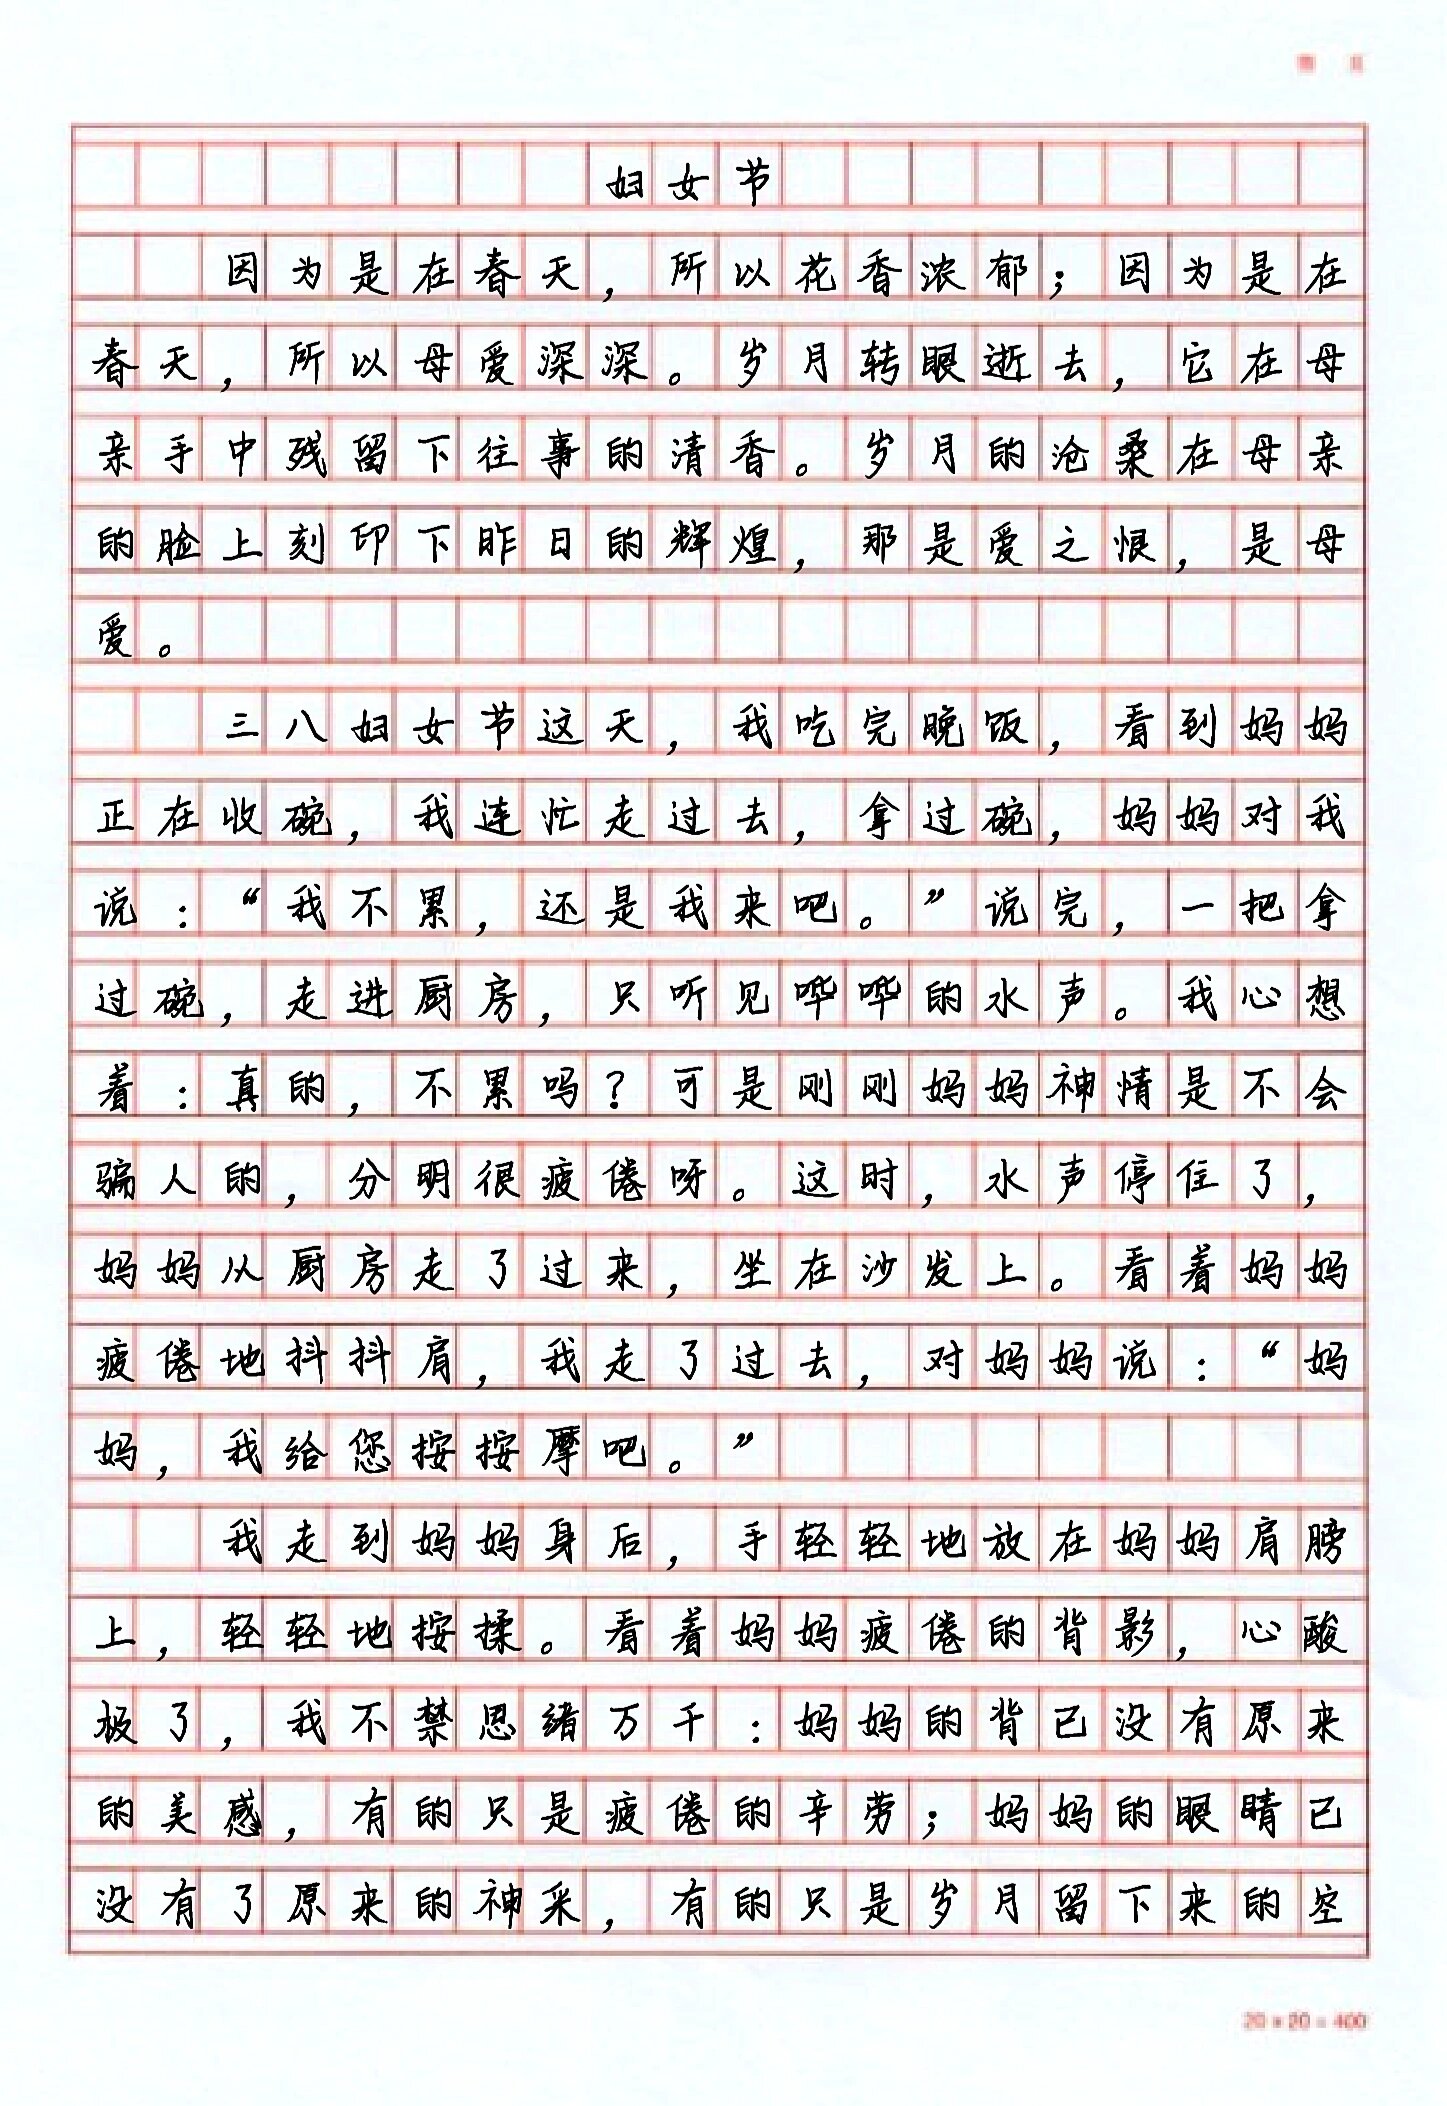 妇女节
因为是在春天，所以花香浓郁；因为是在
春天，所以母爱深深。岁月转眼逝去，它在母
亲手中残留下往事的清香。岁月的沧桑在母亲
的脸上刻印下昨日的辉煌，那是爱之恨，是母
爱。
三八妇女节这天，我吃完晚饭，看到妈妈
正在收碗，我连忙走过去，拿过碗，妈妈对我
说：“我不累，还是我来吧。”说完，一把拿
过碗，走进厨房，只听见哗哗的水声。我心想
着：真的，不累吗？可是刚刚妈妈神情是不会
骗人的，分明很疲倦呀。这时，水声停住了，
妈妈从厨房走了过来，坐在沙发上。看着妈妈
疲倦地抖抖肩，我走了过去，对妈妈说：“妈
妈，我给您按按摩吧。”
我走到妈妈身后，手轻轻地放在妈妈肩膀
上，轻轻地按揉。看着妈妈疲倦的背影，心酸
极了，我不禁思绪万千：妈妈的背已没有原来
的美感，有的只是疲倦的辛劳；妈妈的眼睛已
没有了原来的神采，有的只是岁月留下来的空
20×20=400